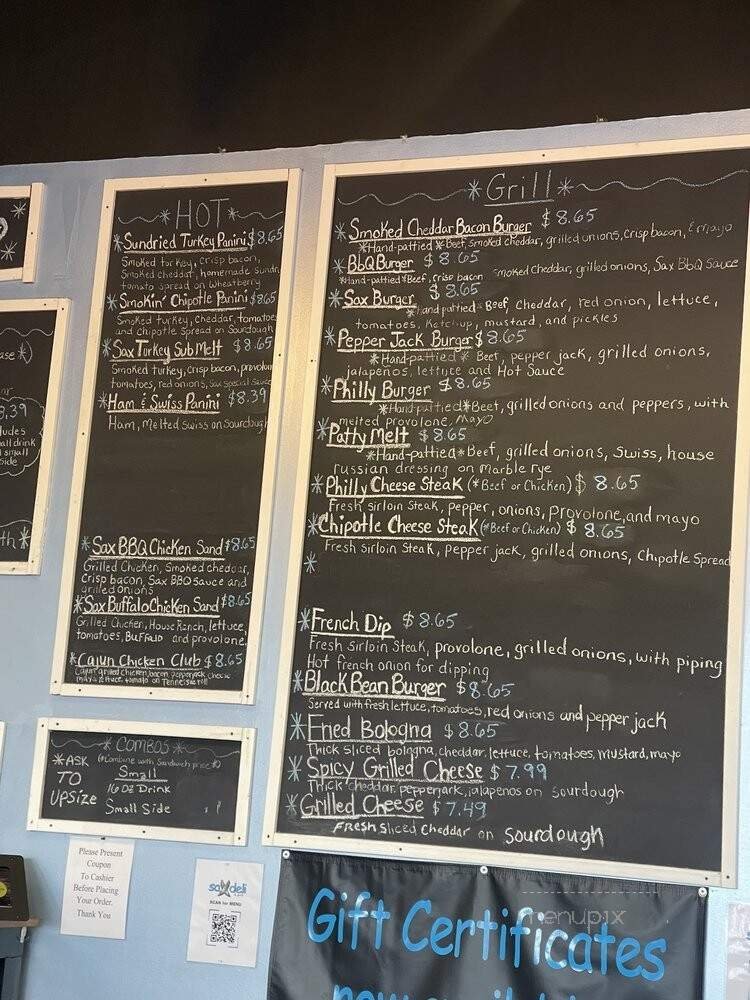 ase *)
8.39
ludes
all drink
1 small
side
th *
*HOT*
*Sundried Turkey Panini $8.65
Smoked turkey, crisp bacon,
Smoked cheddar, homemade Sundri
tomato spread on Wheatberry
*Smokin' Chipotle Panini $8.65
Smoked turkey, Cheddar, tomatoes
and Chipotle Spread on Sourdough
*Sax Turkey Sub Melt $8.65
Smoked turkey, Crisp bacon, provolon
tomatoes, red onions, Sax special sauce
*Ham & Swiss Panini $8.39
Ham, Melted Swiss on Sourdough
*Sax BBQ Chicken Sand $8.65
Grilled Chicken, Smoked cheddar,
Crisp bacon, Sax BBQ Sauce and
grilled onions
*Sax Buffalo Chicken Sand $8.65
Grilled Chicken, House Ranch, lettuce,
tomatoes, Buffalo and provolone
*Cajun Chicken Club $8.65
Cajun grilled chicken, bacon, pepperjack cheese
mayo lettuce, tomato on
*Grill*
*Smoked Cheddar Bacon Burger $8.65
*Hand-pattied*Beef, smoked cheddar, grilled onions, Crisp bacon, & mayo
*BbQ Burger $8.65
*Hand-pattied*Beef, crisp bacon Smoked Cheddar, grilled onions, Sax BbQ Sauce
*Sax Burger $8.65
*Hand pattied*Beef, Cheddar, red onion, lettuce,
tomatoes, Ketchup, mustard, and pickles
*Pepper Jack Burger $8.65
*Hand-pattied* Beef, pepper jack, grilled onions,
jalapeños, lettuce and Hot Sauce
*Philly Burger $8.65
*Hand pattied*Beef, grilled onions and peppers, with
melted provolone, mayo
*Patty Melt $8.65
*Hand-pattied*Beef, grilled onions, Swiss, house
russian dressing on marble rye
*Philly Cheese Steak (*Beef or Chicken) $8.65
Fresh sirloin Steak, pepper, onions, Provolone, and mayo
*Chipotle Cheese Steak (*Beef or Chicken) $8.65
Fresh Sirloin Steak, pepper jack, grilled onions, Chipotle Spread
*
*French Dip $8.65
Fresh Sirloin Steak, provolone, grilled onions, with piping
Hot french onion for dipping
*Black Bean Burger $8.65
Served with fresh lettuce, tomatoes, red onions and pepper jack
*Fried Bologna $8.65
Thick Sliced bologna, cheddar, lettuce, tomatoes, mustard, mayo
*Spicy Grilled Cheese $7.99
Thick cheddar, pepperjack, jalapenos on Sourdough
*Grilled Cheese $7.49
Fresh Sliced Cheddar on Sourdough
*COMBOS*
(*Combine with Sandwich price*)
*ASK
TO
UPSize
Small
16 OZ Drink
Small Side
Please Present
Coupon
To Cashier
Before Placing
Your Order.
Thank You
sax deli
SCAN for MENU
menupix
Gift Certificates